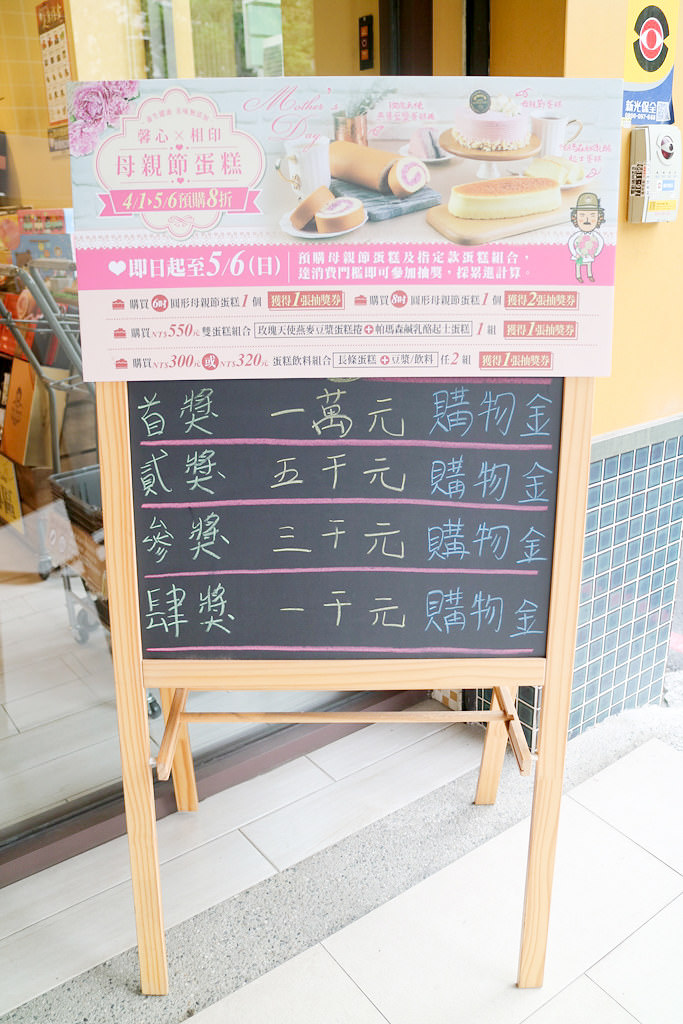 馨心×相印
母親節蛋糕
4/1▸5/6預購8折
Mother's Day
母親節蛋糕
即日起至5/6(日)
預購母親節蛋糕及指定款蛋糕組合，
達消費門檻即可參加抽獎，採累進計算。
購買6吋圓形母親節蛋糕1個 獲得1張抽獎券
購買8吋圓形母親節蛋糕1個 獲得2張抽獎券
購買NT$550元 雙蛋糕組合 玫瑰天使燕麥豆漿蛋糕捲+帕瑪森鹹乳酪起士蛋糕 1組 獲得1張抽獎券
購買NT$300元 或 NT$320元 蛋糕飲料組合 長條蛋糕+豆漿/飲料 任2組 獲得1張抽獎券
首獎 一萬元 購物金
貳獎 五千元 購物金
參獎 三千元 購物金
肆獎 一千元 購物金
新光保全